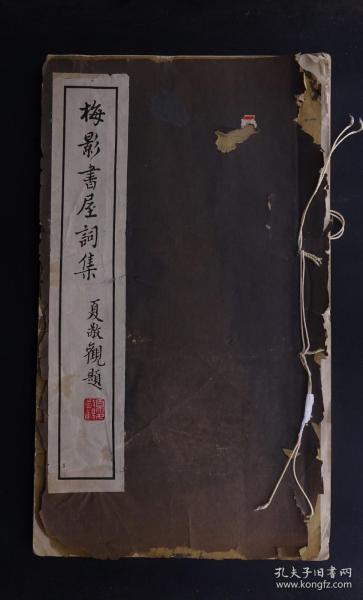 梅影書屋詞集
夏敬觀題
孔夫子旧书网